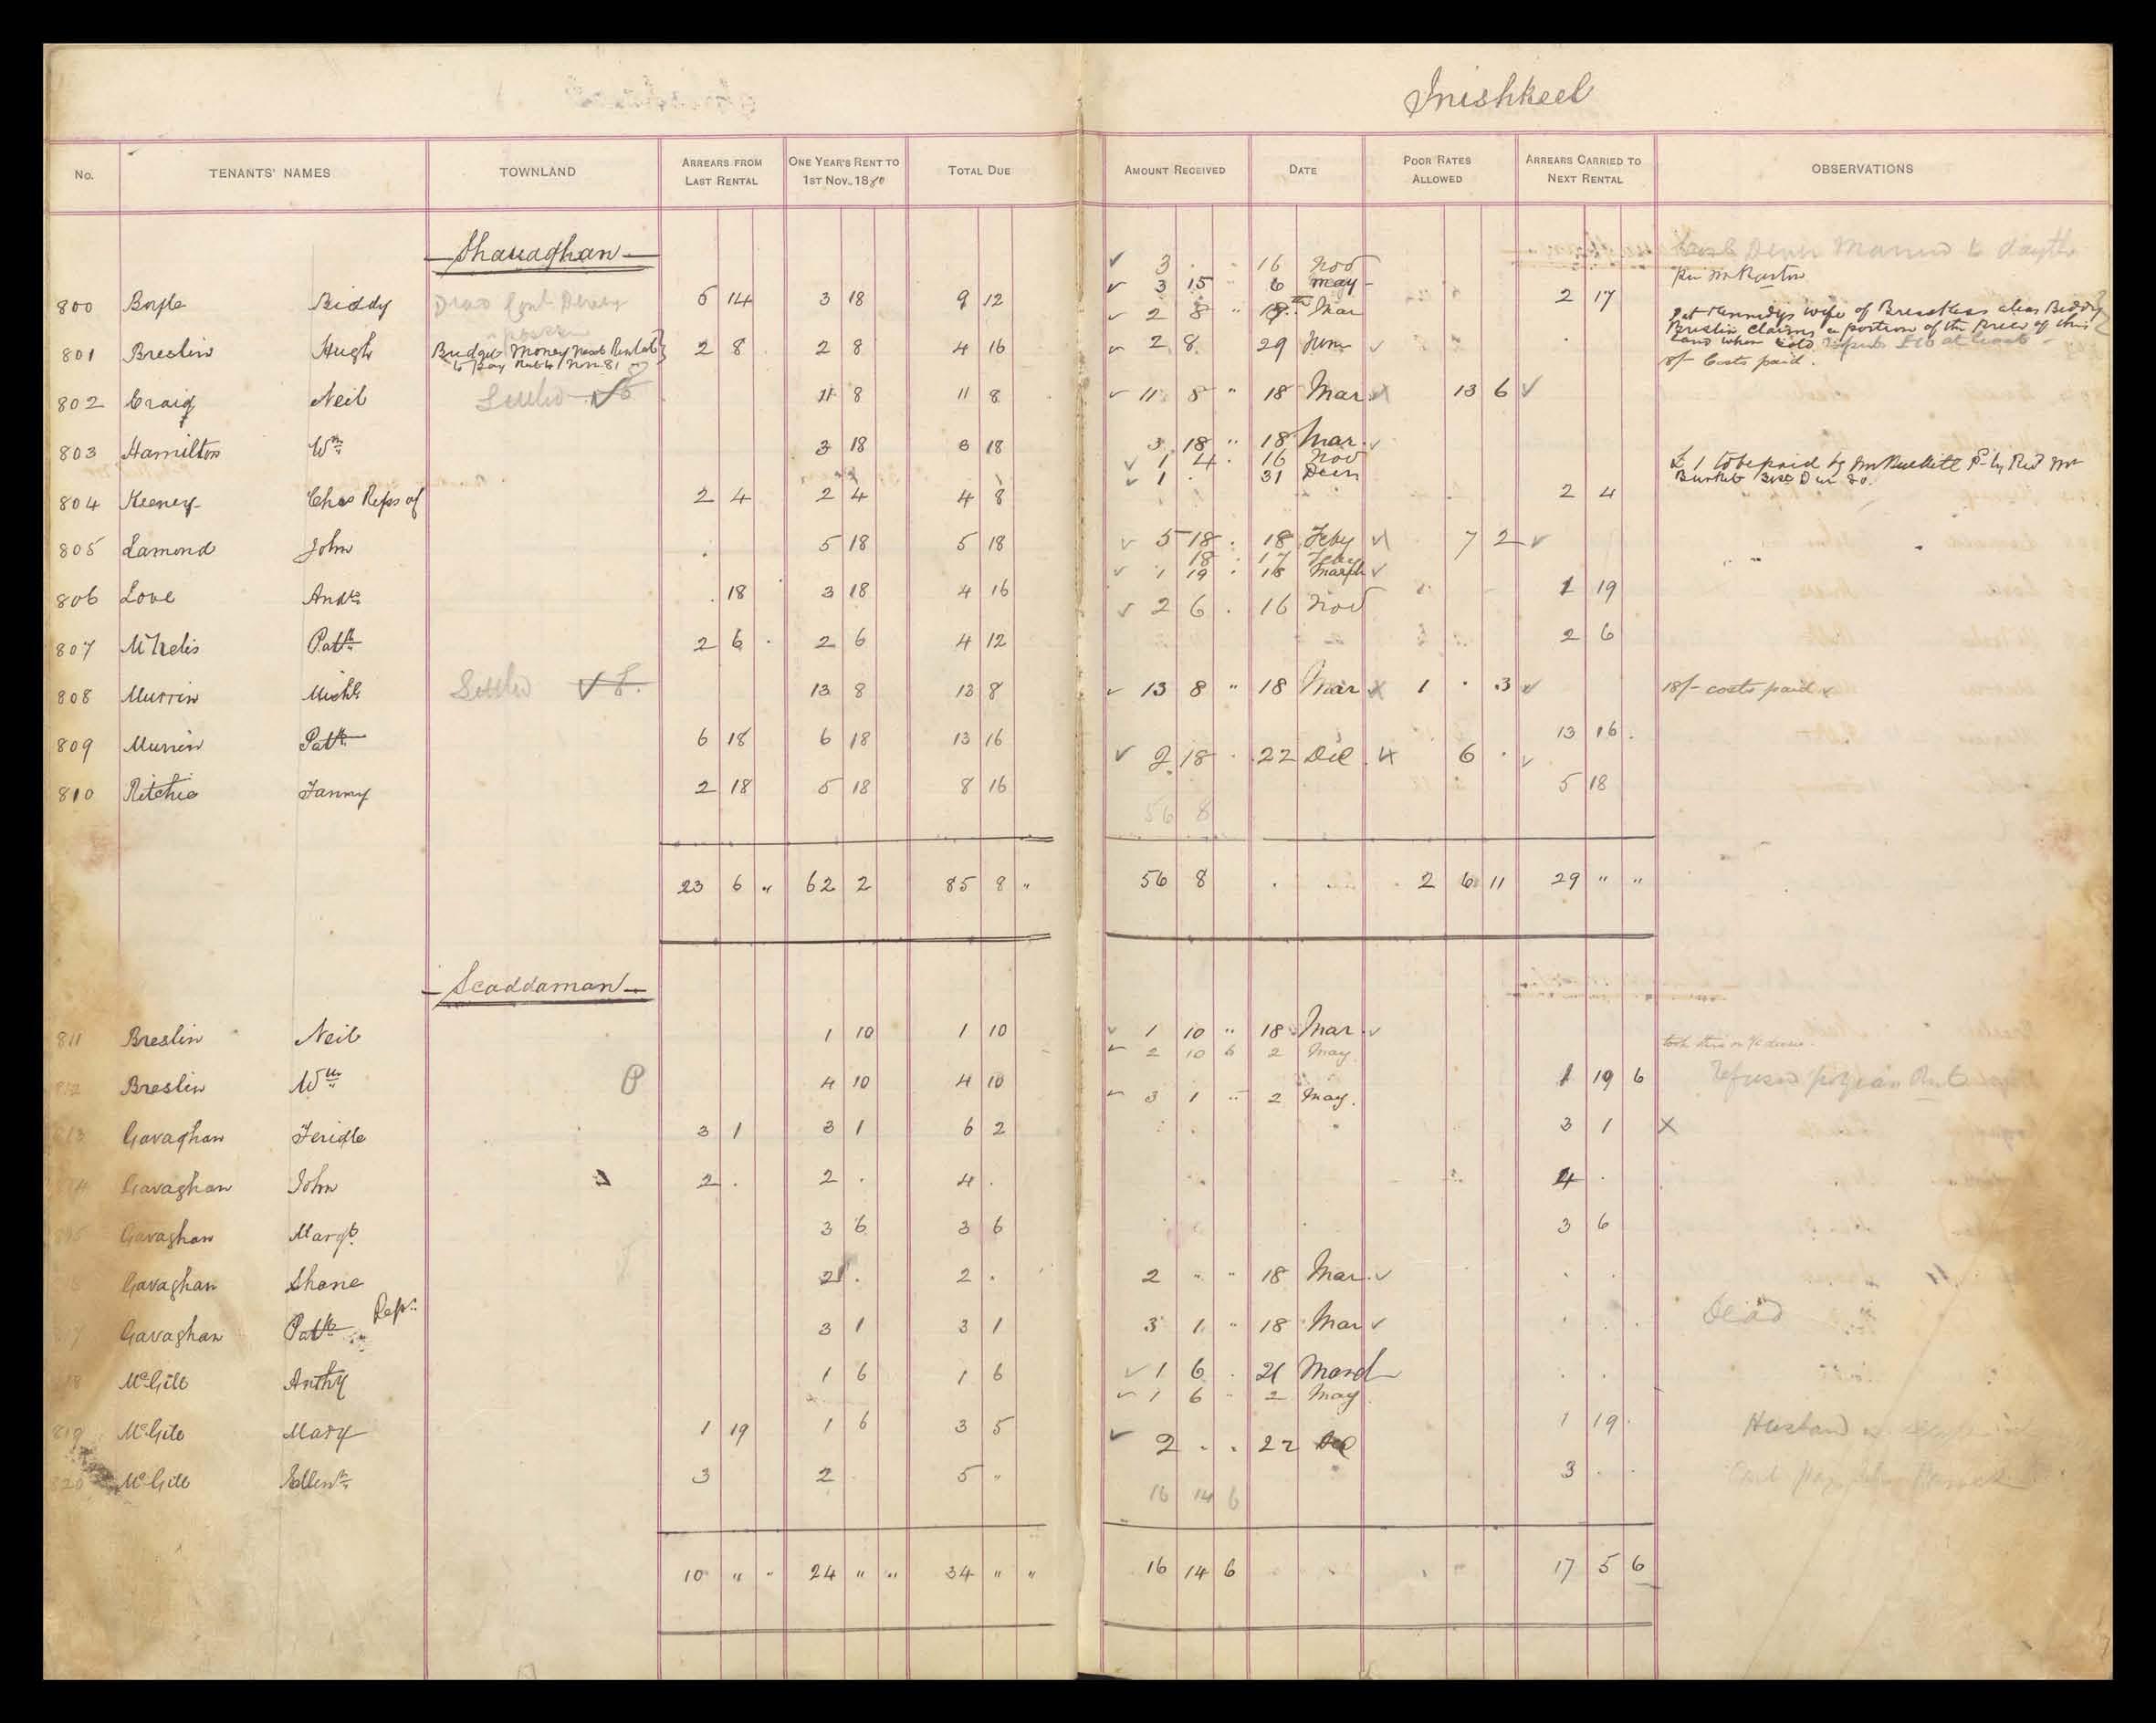 Inishkeel
No. TENANTS' NAMES TOWNLAND ARREARS FROM LAST RENTAL ONE YEAR'S RENT TO 1ST NOV. 1880 TOTAL DUE AMOUNT RECEIVED DATE POOR RATES ALLOWED ARREARS CARRIED TO NEXT RENTAL OBSERVATIONS
Shanaghan
✓ 3 . 16 Nov
✓ 3 15 " 6 May
800 Boyle Biddy 5 14 3 18 9 12 2 17
✓ 2 8 " Mar
801 Breslin Hugh 2 8 . 2 8 4 16 ✓ 2 8 . 29 June ✓
Pat Kennedys wife of alias Biddy
Breslin claims a portion of the Price of this
land when sold
8/- Costs paid.
802 Craig Neil Settled 11 8 11 8 ✓ 11 8 " 18 Mar 13 6 ✓
803 Hamilton Wm 3 18 3 18 3 18 " 18 Mar. ✓
✓ 1 4 . 16 Nov
✓ 1 . 31 Decr
£1 to be paid by Mr
804 Keeney Chas Reps of 2 4 2 4 4 8 2 4
805 Lamond John 5 18 5 18 ✓ 5 18 . 18 Feby ✓ 7 2 ✓
18 . 17 Feby
✓ 1 19 . 18 March ✓
806 Love Andw . 18 3 18 4 16 1 19
✓ 2 6 . 16 Nov
807 McNelis Patk 2 6 . 2 6 4 12 2 6
808 Murrin Michl Settled 13 8 13 8 ✓ 13 8 " 18 Mar 1 . 3 ✓ 18/- costs paid ✓
809 Murrin Patk 6 18 6 18 13 16 13 16 .
✓ 2 18 . 22 Dec 6 . ✓
810 Ritchie Fanny 2 18 5 18 8 16 5 18
56 8
23 6 " 62 2 85 8 " 56 8 2 6 11 29 " "
Scaddaman
811 Breslin Neil 1 10 1 10 ✓ 1 10 " 18 Mar. ✓
✓ 2 10 6 2 May.
812 Breslin Wm P 4 10 4 10 1 19 6 Refused
✓ 3 1 " 2 May.
813 Gavaghan Feridle 3 1 3 1 6 2 3 1 X
814 Gavaghan John 2 . 2 . 4 . 4 .
815 Gavaghan Margt 3 6 3 6 3 6
816 Gavaghan Shane 2 . 2 . 2 " " 18 Mar. ✓
817 Gavaghan Patk Reps 3 1 3 1 3 1 " 18 Mar ✓ Dead
818 McGill Anthy 1 6 1 6 ✓ 1 6 . 21 March
✓ 1 6 " 2 May
819 McGill Mary 1 19 1 6 3 5 1 19 . Husband
✓ 2 . . 22 Dec
820 McGill Ellenr 3 2 5 " 3 . .
16 14 6
10 " " 24 " " 34 " " 16 14 6 17 5 6